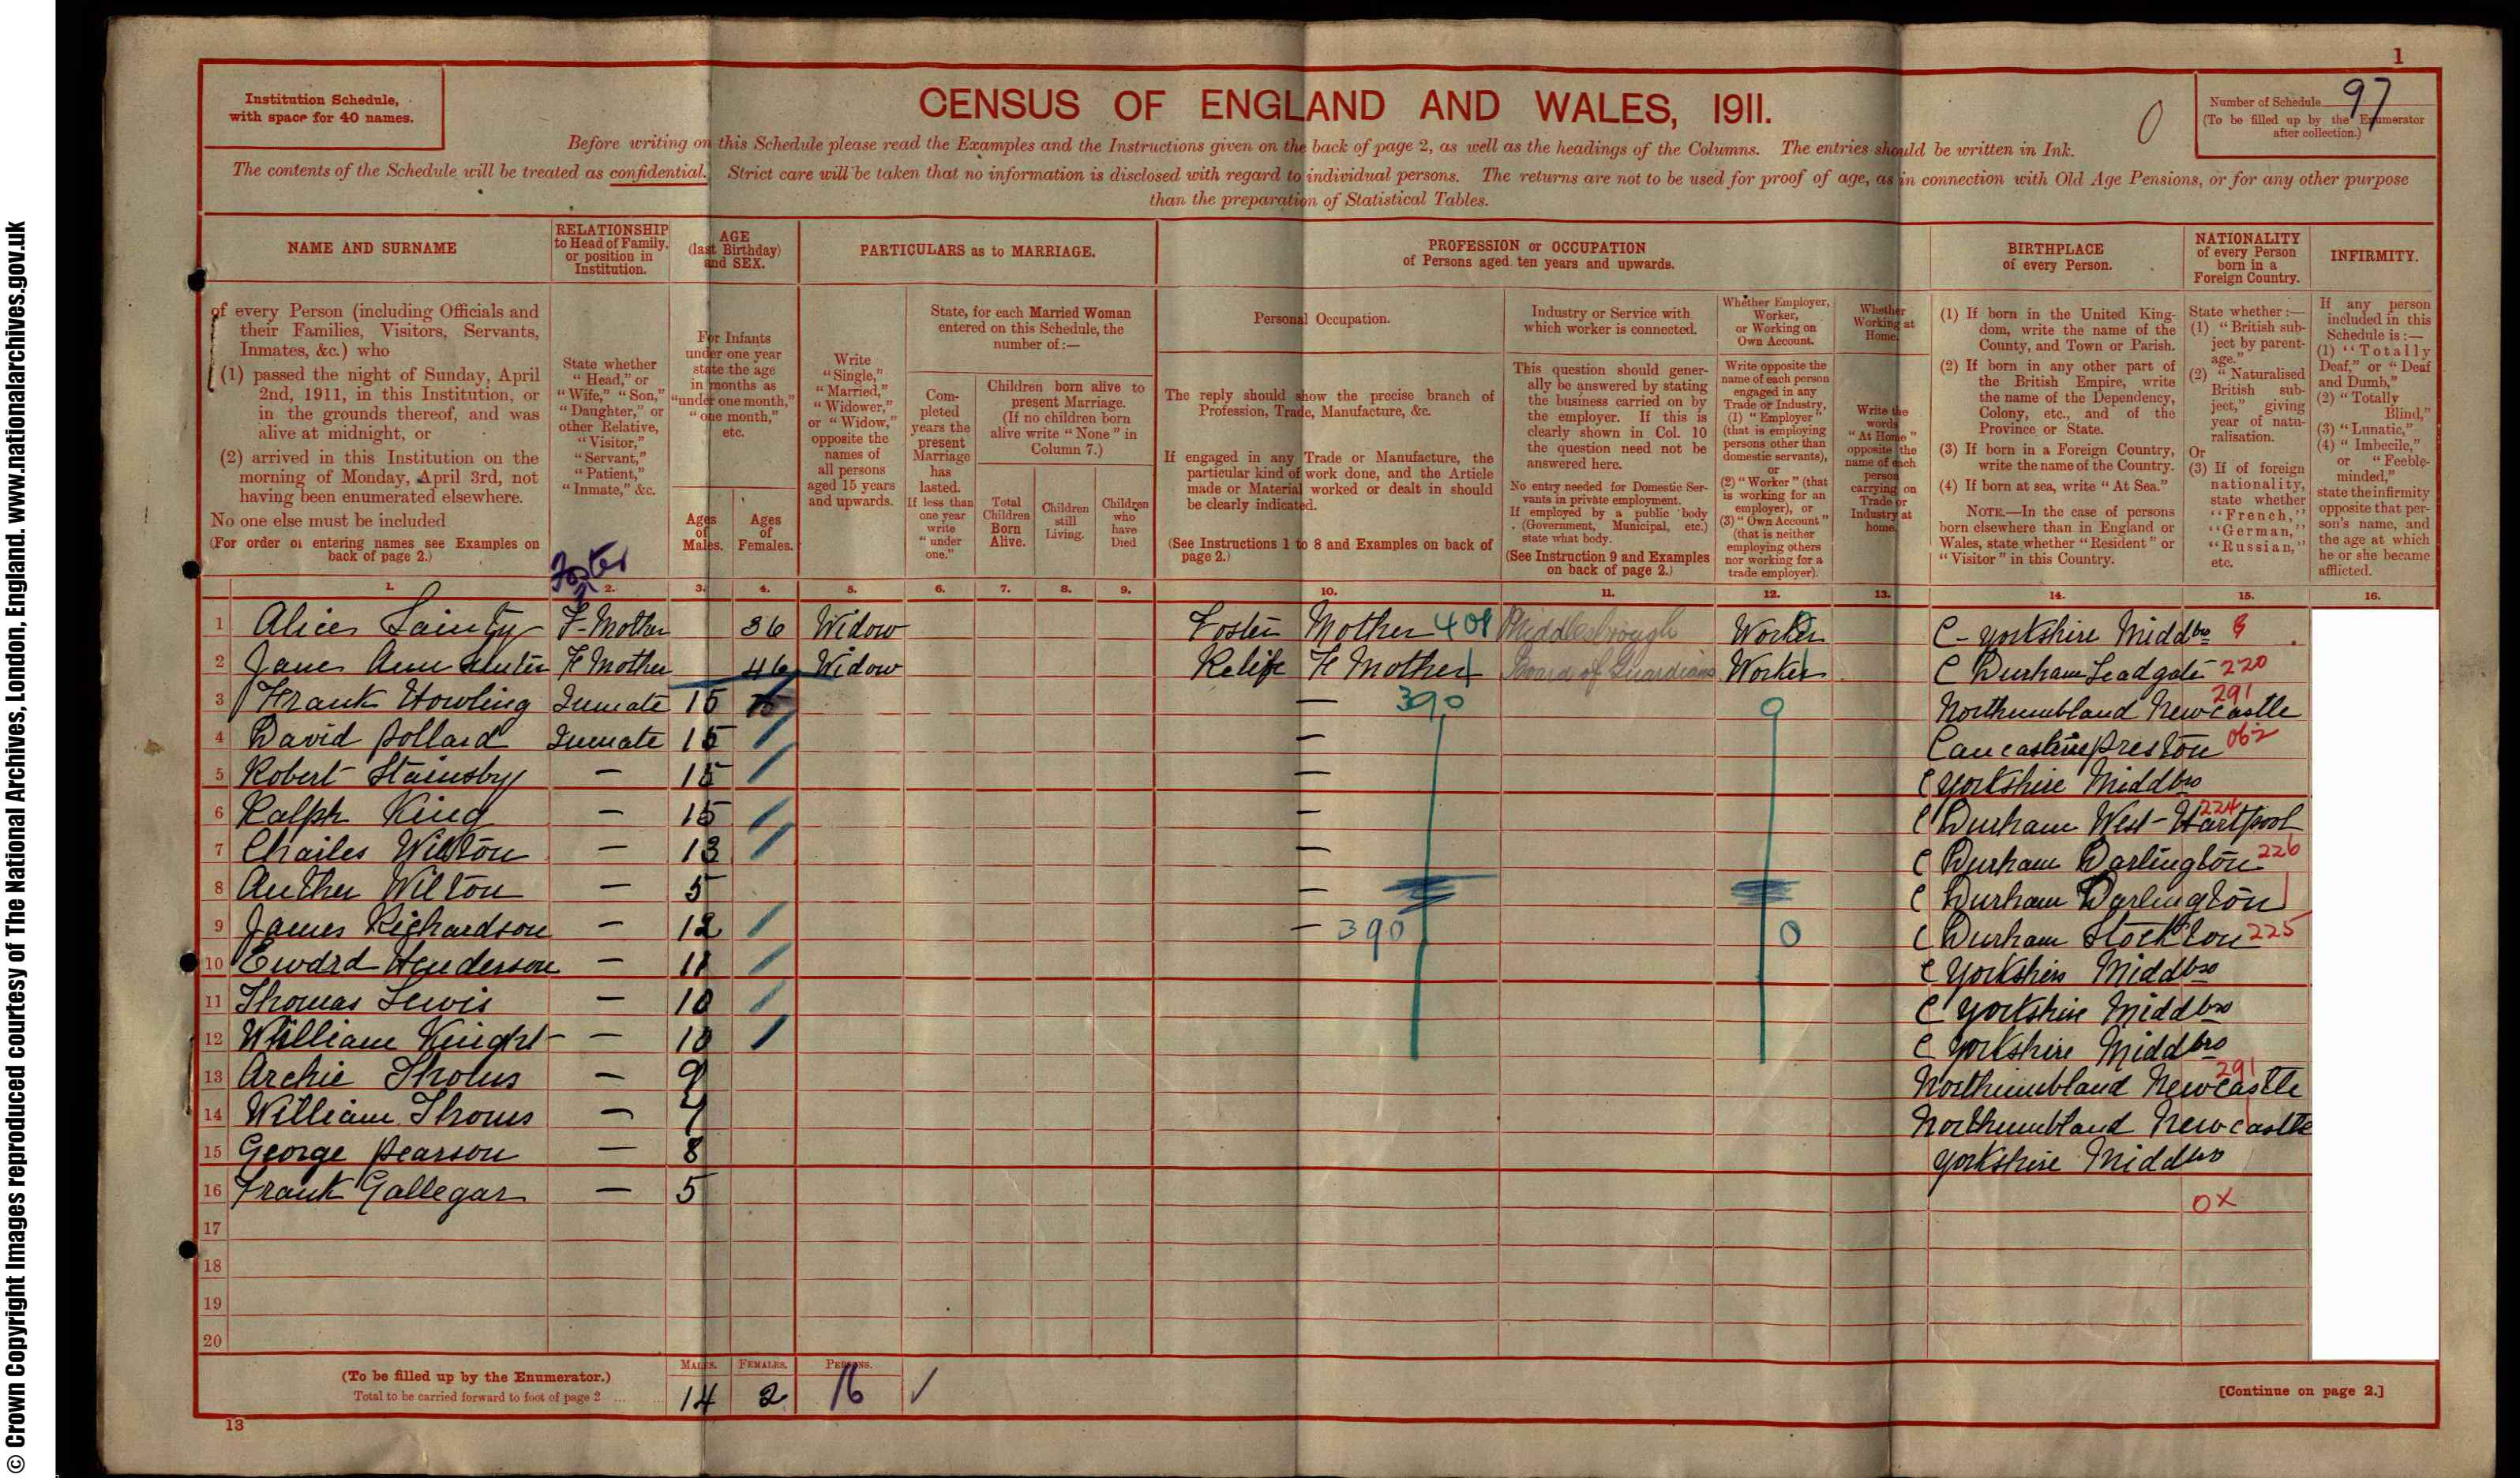 © Crown Copyright Images reproduced courtesy of The National Archives, London, England. www.nationalarchives.gov.uk
1
Institution Schedule,
with space for 40 names.
CENSUS OF ENGLAND AND WALES, 1911.
0
Number of Schedule 97
(To be filled up by the Enumerator
after collection.)
Before writing on this Schedule please read the Examples and the Instructions given on the back of page 2, as well as the headings of the Columns. The entries should be written in Ink.
The contents of the Schedule will be treated as confidential. Strict care will be taken that no information is disclosed with regard to individual persons. The returns are not to be used for proof of age, as in connection with Old Age Pensions, or for any other purpose
than the preparation of Statistical Tables.
NAME AND SURNAME
of every Person (including Officials and
their Families, Visitors, Servants,
Inmates, &c.) who
(1) passed the night of Sunday, April
2nd, 1911, in this Institution, or
in the grounds thereof, and was
alive at midnight, or
(2) arrived in this Institution on the
morning of Monday, April 3rd, not
having been enumerated elsewhere.
No one else must be included
(For order of entering names see Examples on
back of page 2.)
RELATIONSHIP
to Head of Family,
or position in
Institution.
State whether
"Head," or
"Wife," "Son,"
"Daughter," or
other Relative,
"Visitor,"
"Servant,"
"Patient,"
"Inmate," &c.
Foster
AGE
(last Birthday)
and SEX.
For Infants
under one year
state the age
in months as
"under one month,"
"one month,"
etc.
Ages
of
Males.
Ages
of
Females.
PARTICULARS as to MARRIAGE.
Write
"Single,"
"Married,"
"Widower,"
or "Widow,"
opposite the
names of
all persons
aged 15 years
and upwards.
State, for each Married Woman
entered on this Schedule, the
number of:—
Com-
pleted
years the
present
Marriage
has
lasted.
If less than
one year
write
"under
one."
Children born alive to
present Marriage.
(If no children born
alive write "None" in
Column 7.)
Total
Children
Born
Alive.
Children
still
Living.
Children
who
have
Died
PROFESSION or OCCUPATION
of Persons aged ten years and upwards.
Personal Occupation.
The reply should show the precise branch of
Profession, Trade, Manufacture, &c.
If engaged in any Trade or Manufacture, the
particular kind of work done, and the Article
made or Material worked or dealt in should
be clearly indicated.
(See Instructions 1 to 8 and Examples on back of
page 2.)
Industry or Service with
which worker is connected.
This question should gener-
ally be answered by stating
the business carried on by
the employer. If this is
clearly shown in Col. 10
the question need not be
answered here.
No entry needed for Domestic Ser-
vants in private employment.
If employed by a public body
(Government, Municipal, etc.)
state what body.
(See Instruction 9 and Examples
on back of page 2.)
Whether Employer,
Worker,
or Working on
Own Account.
Write opposite the
name of each person
engaged in any
Trade or Industry,
(1) "Employer"
(that is employing
persons other than
domestic servants),
or
(2) "Worker" (that
is working for an
employer), or
(3) "Own Account"
(that is neither
employing others
nor working for a
trade employer).
Whether
Working at
Home.
Write the
words
"At Home"
opposite the
name of each
person
carrying on
Trade or
Industry at
home.
BIRTHPLACE
of every Person.
(1) If born in the United King-
dom, write the name of the
County, and Town or Parish.
(2) If born in any other part of
the British Empire, write
the name of the Dependency,
Colony, etc., and of the
Province or State.
(3) If born in a Foreign Country,
write the name of the Country.
(4) If born at sea, write "At Sea."
NOTE.—In the case of persons
born elsewhere than in England or
Wales, state whether "Resident" or
"Visitor" in this Country.
NATIONALITY
of every Person
born in a
Foreign Country.
State whether:—
(1) "British sub-
ject by parent-
age."
(2) "Naturalised
British sub-
ject," giving
year of natu-
ralisation.
Or
(3) If of foreign
nationality,
state whether
"French,"
"German,"
"Russian,"
etc.
INFIRMITY.
If any person
included in this
Schedule is:—
(1) "Totally
Deaf," or "Deaf
and Dumb,"
(2) "Totally
Blind,"
(3) "Lunatic,"
(4) "Imbecile,"
or "Feeble-
minded,"
state the infirmity
opposite that per-
son's name, and
the age at which
he or she became
afflicted.
1. 2. 3. 4. 5. 6. 7. 8. 9. 10. 11. 12. 13. 14. 15. 16.
1 Alice Sainty F-Mother 36 Widow Foster Mother 401 Middlesbrough Worker C - Yorkshire Middbro
2 Jane Ann F Mother 46 Widow Relief F Mother Board of Guardians Worker C Durham Leadgate 220
3 Frank Howling Inmate 15 — 390 9 Northumbland Newcastle 291
4 David Pollard Inmate 15 — Lancashire Preston 062
5 Robert Stainsby — 15 — C Yorkshire Middbro
6 Ralph King — 15 — C Durham West-Hartpool 224
7 Charles Wilton — 13 — C Durham Darlington 226
8 Arther Wilton — 5 — C Durham Darlington
9 James Richardson — 12 — 390 0 C Durham Stockton 225
10 Edward Henderson — 11 C Yorkshire Middbro
11 Thomas Lewis — 10 C Yorkshire Middbro
12 William Knight — 10 C Yorkshire Middbro
13 Archie Thoms — 9 Northumbland Newcastle 291
14 William Thoms — 7 Northumbland Newcastle
15 George Pearson — 8 Yorkshire Middbro
16 Frank Gallegar — 5 OX
17
18
19
20
(To be filled up by the Enumerator.)
Total to be carried forward to foot of page 2 ...
MALES. FEMALES. PERSONS.
14 2 16
[Continue on page 2.]
13